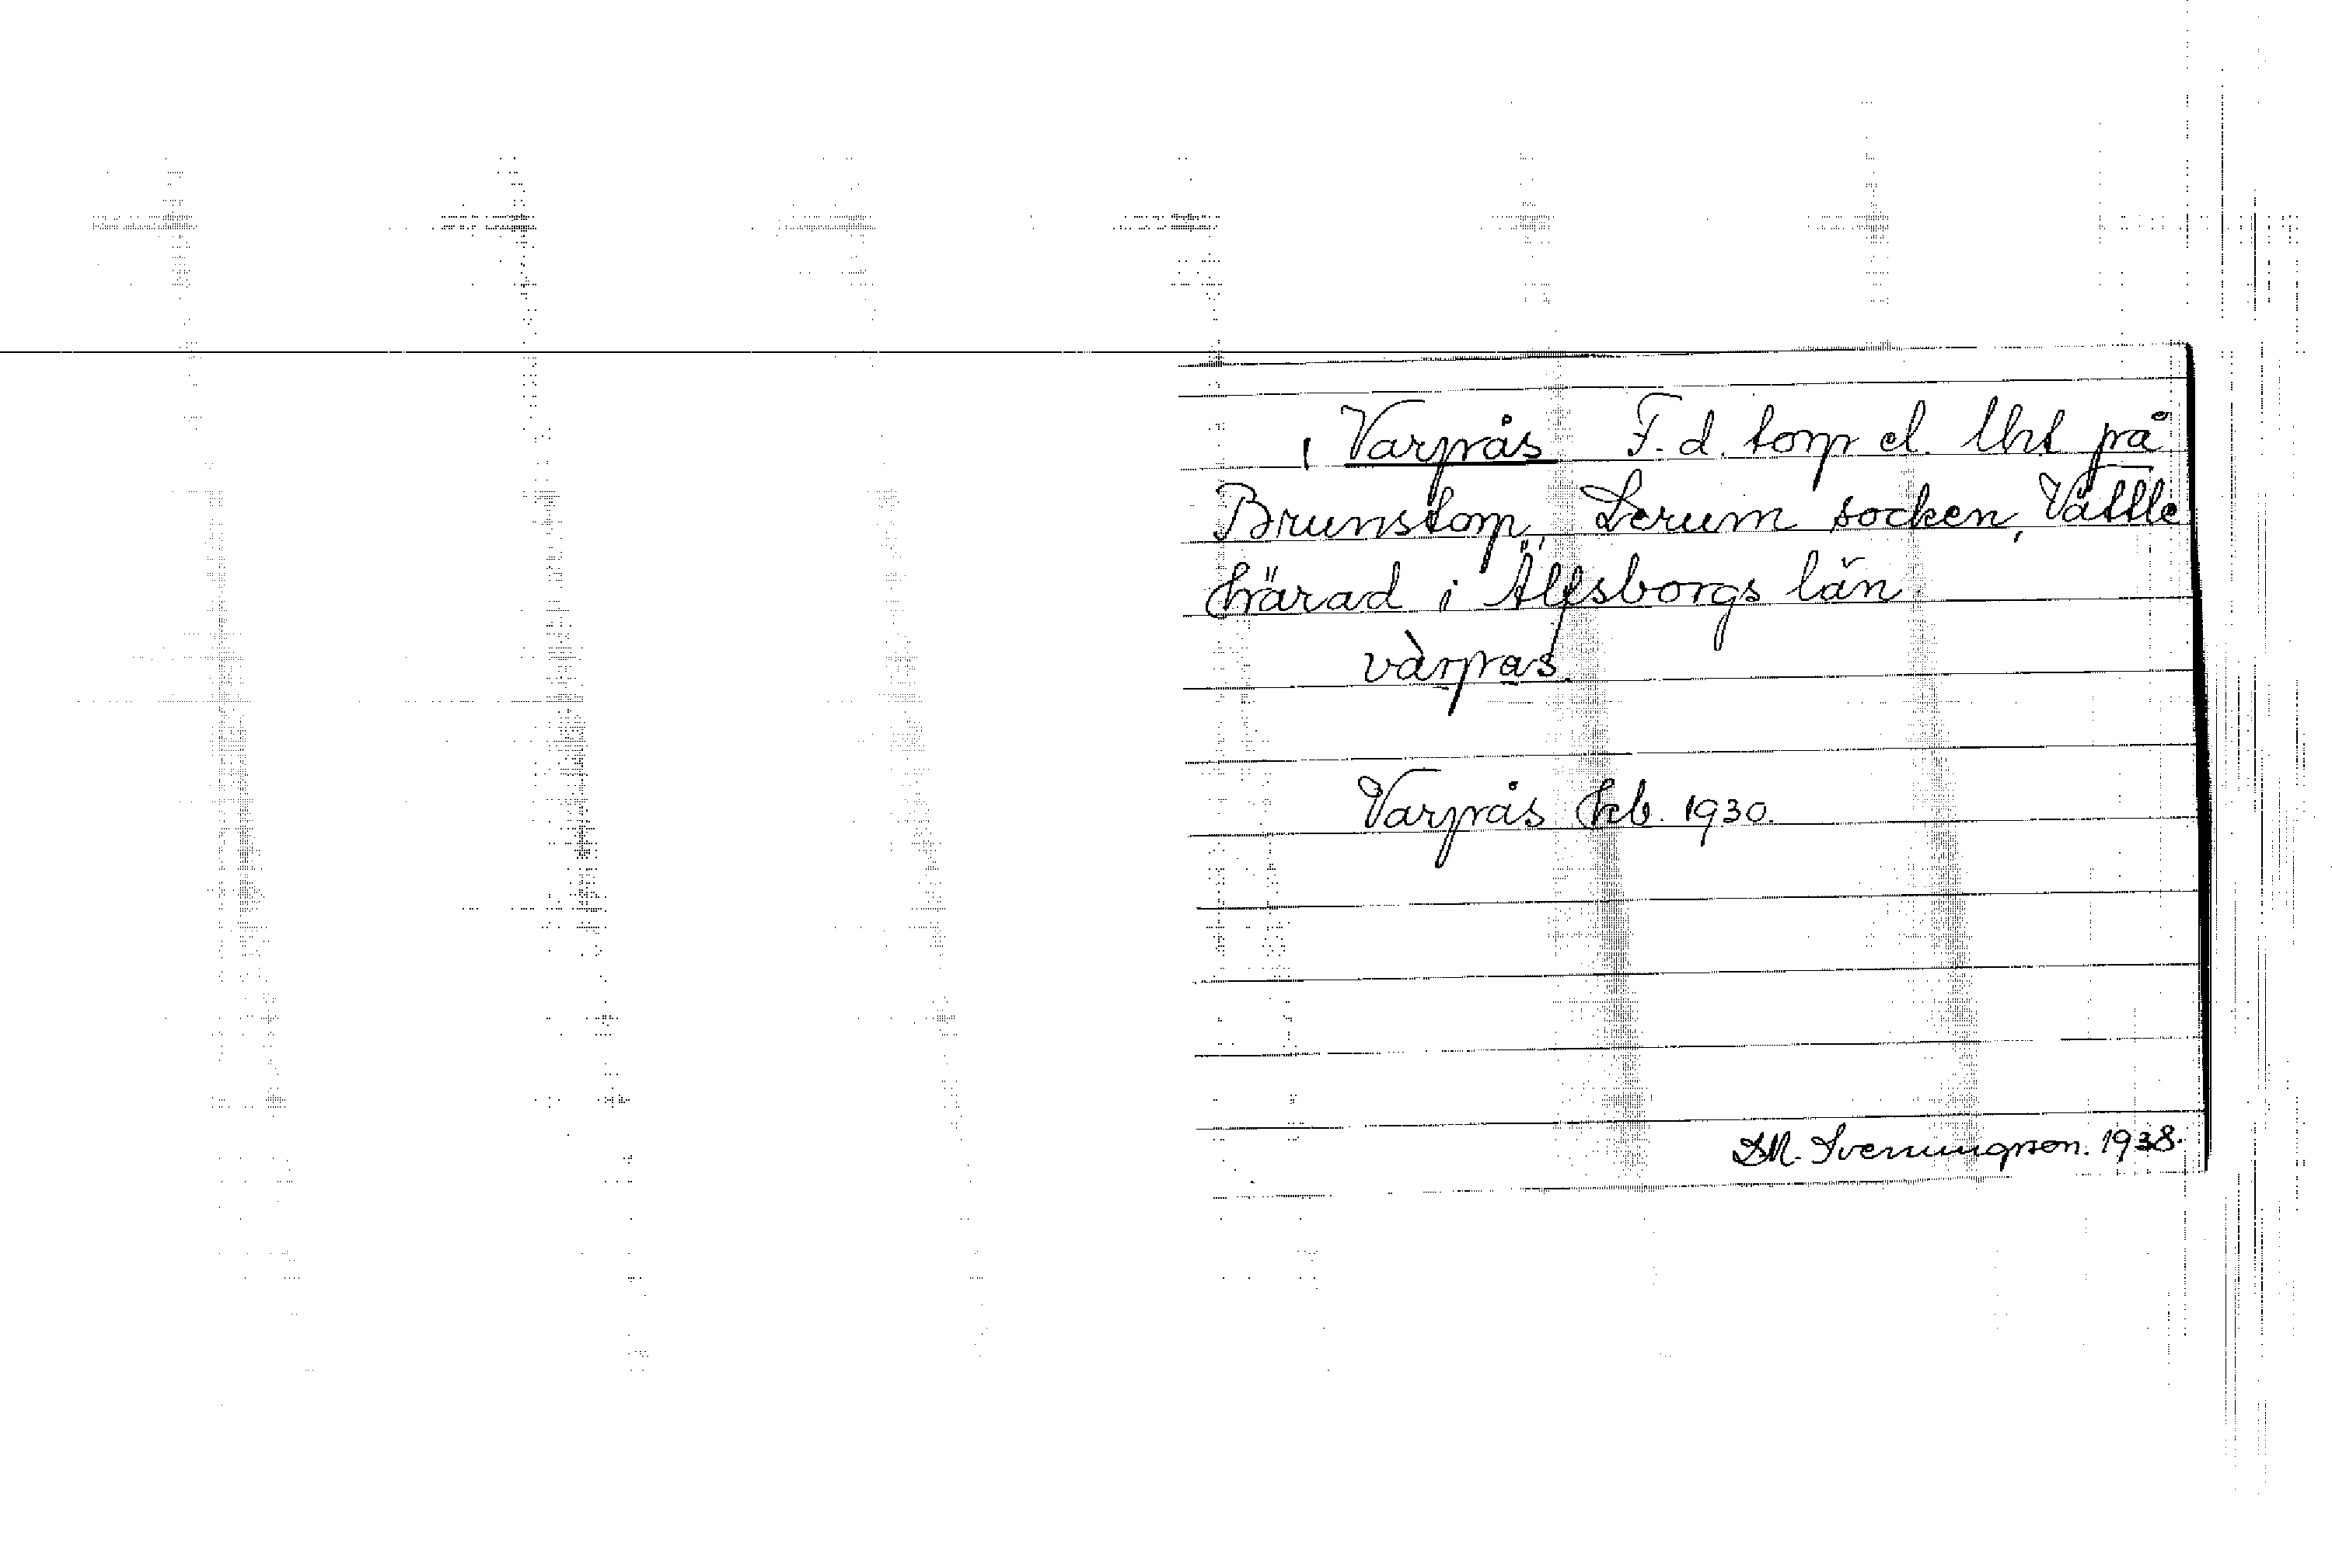 Varpås F.d. torp el. lht på
Brunstorp, Lerum socken, Vättle
härad i Älfsborgs län
vàrpas.
Varpås Hcb. 1930.
1938.